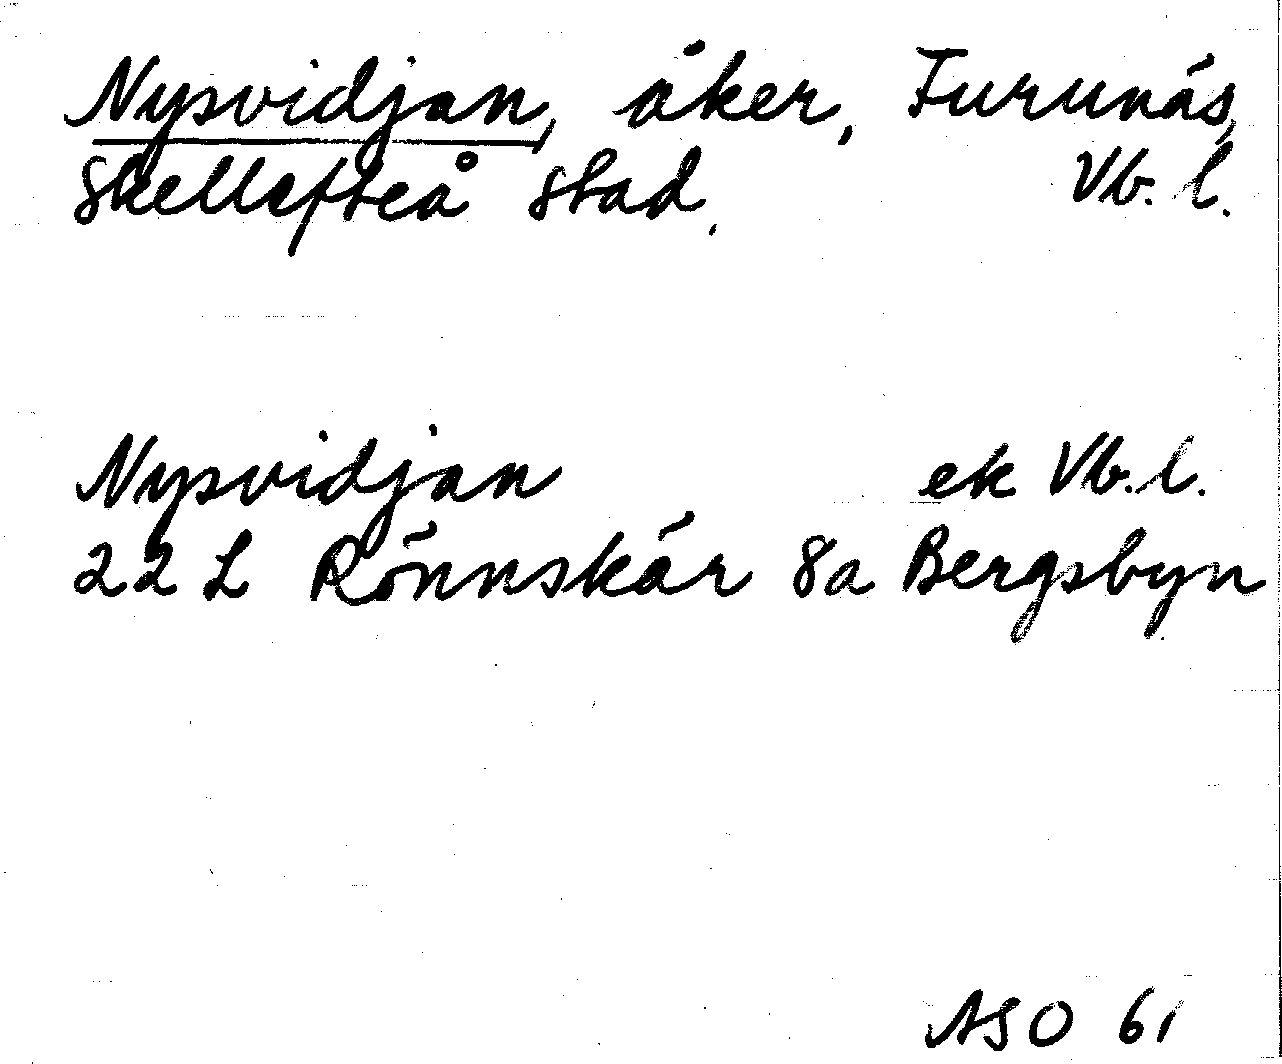 Nysvidjan, åker, Furunäs,
Skellefteå stad. Vb. l.
Nysvidjan ek Vb. l.
22 L Rönnskär 8a Bergsbyn
ASO 61